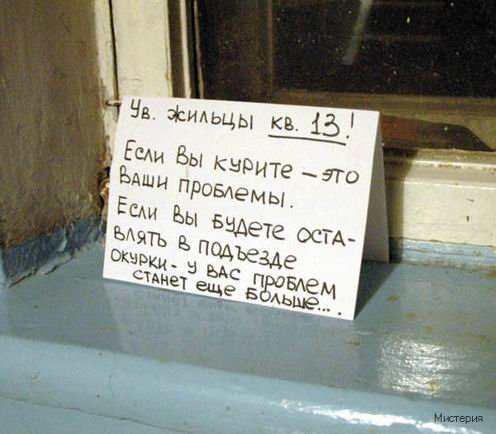 Ув. жильцы кв. 13!
Если Вы курите – это
Ваши проблемы.
Если Вы будете оста-
влять в подъезде
окурки - у вас проблем
станет еще больше....
Мистерия